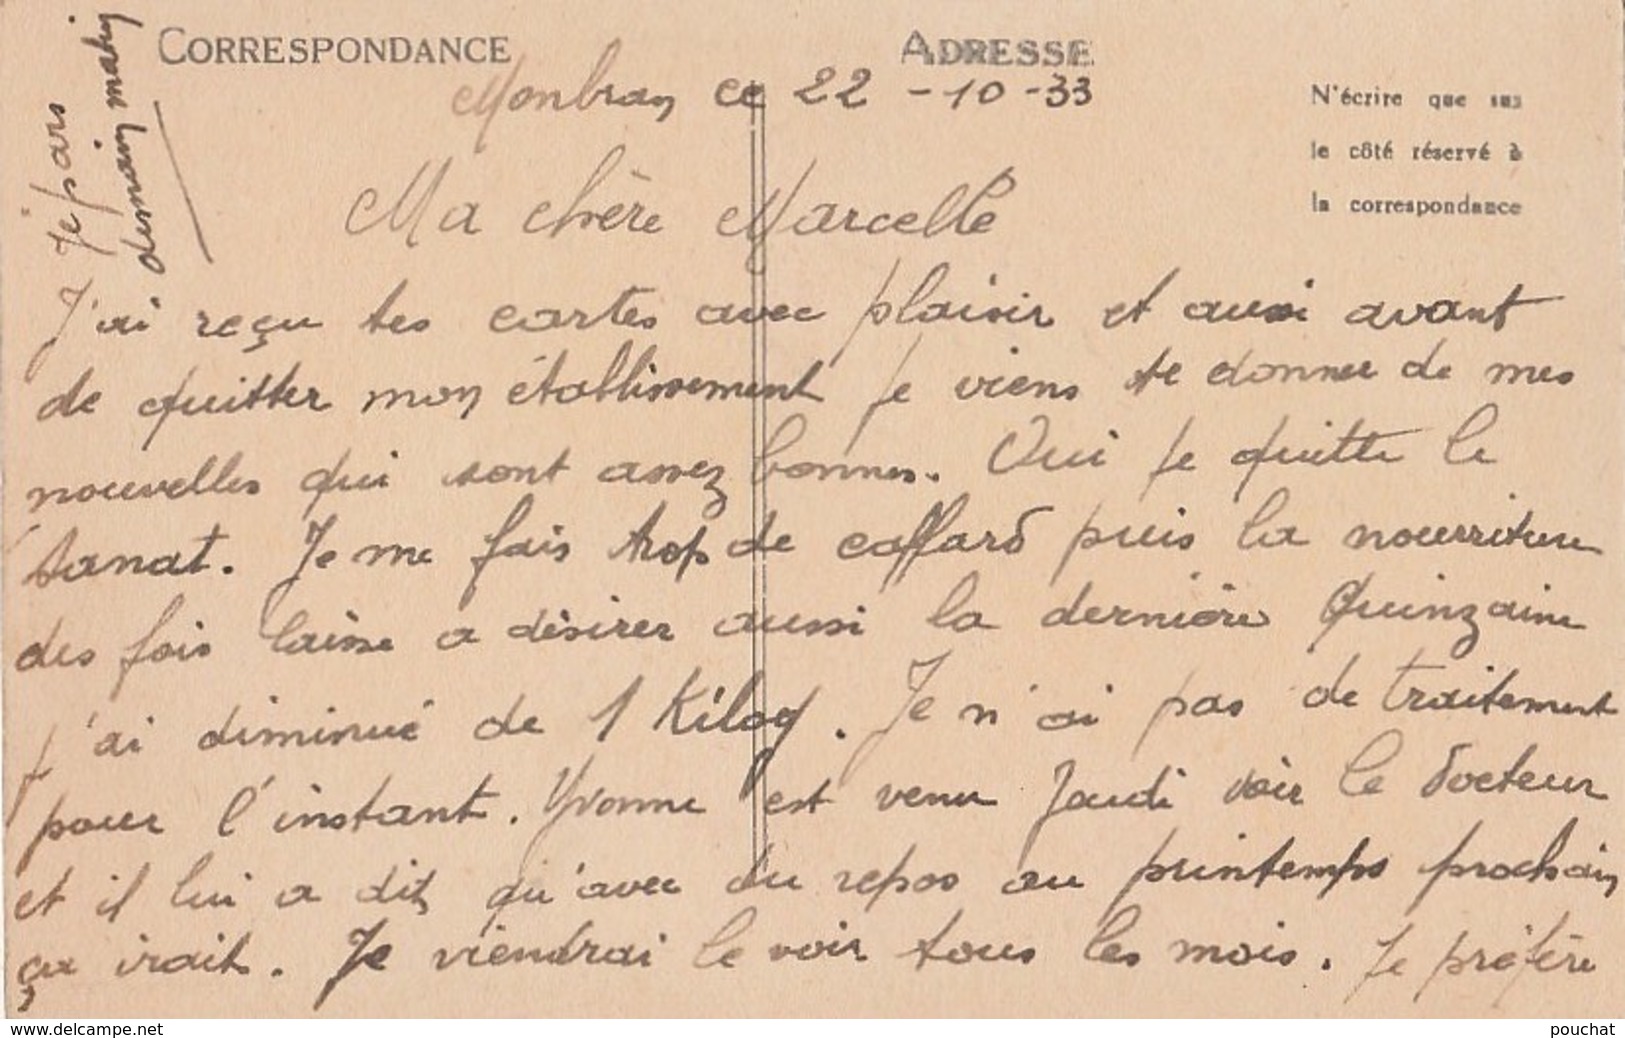 CORRESPONDANCE
ADRESSE
N'écrire que sur
le côté réservé à
la correspondance
Je pars
demain matin
Monbran ce 22 - 10 - 33
Ma chère Marcelle
J'ai reçu tes cartes avec plaisir et aussi avant
de quitter mon établissement je viens te donner de mes
nouvelles qui sont assez bonnes. Oui je quitte le
sanat. Je me fais trop de caffard puis la nourriture
des fois laisse a désirer aussi la dernière Quinzaine
j'ai diminué de 1 Kilog. Je n'ai pas de traitement
pour l'instant. Yvonne est venu Jeudi voir le docteur
et il lui a dit qu'avec du repos au printemps prochain
ça irait. Je viendrai le voir tous les mois. Je préfère
www.delcampe.net
pouchat